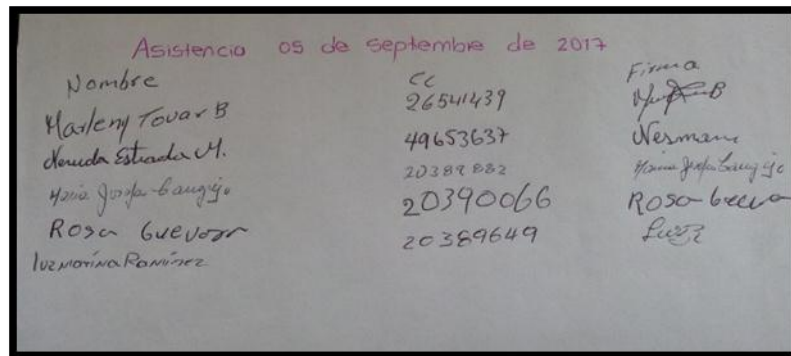 Asistencia 05 de septiembre de 2017
Nombre CC Firma
Marleny Tovar B 26541439
Estrada M. 49653637
Maria Josefa Cangrejo 20389882 Maria Josefa Cangrejo
Rosa Guevara 20390066 Rosa
luz marina Ramirez 20389649 Luz